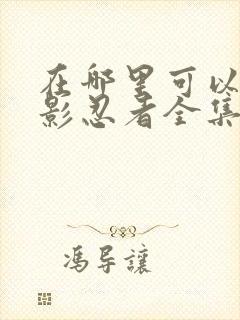 在哪里可以
影忍者全集
冯导讓